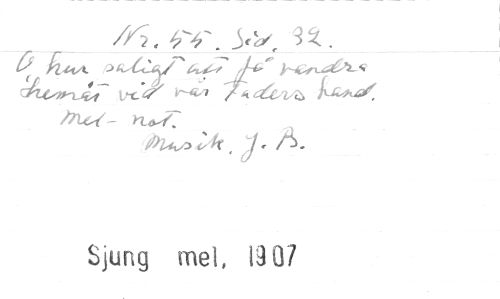 Nr. 55. Sid. 32.
O hur saligt att få vandra
hemåt vid vår Faders hand.
Mel- not.
Musik. J. B.
Sjung mel, 1907